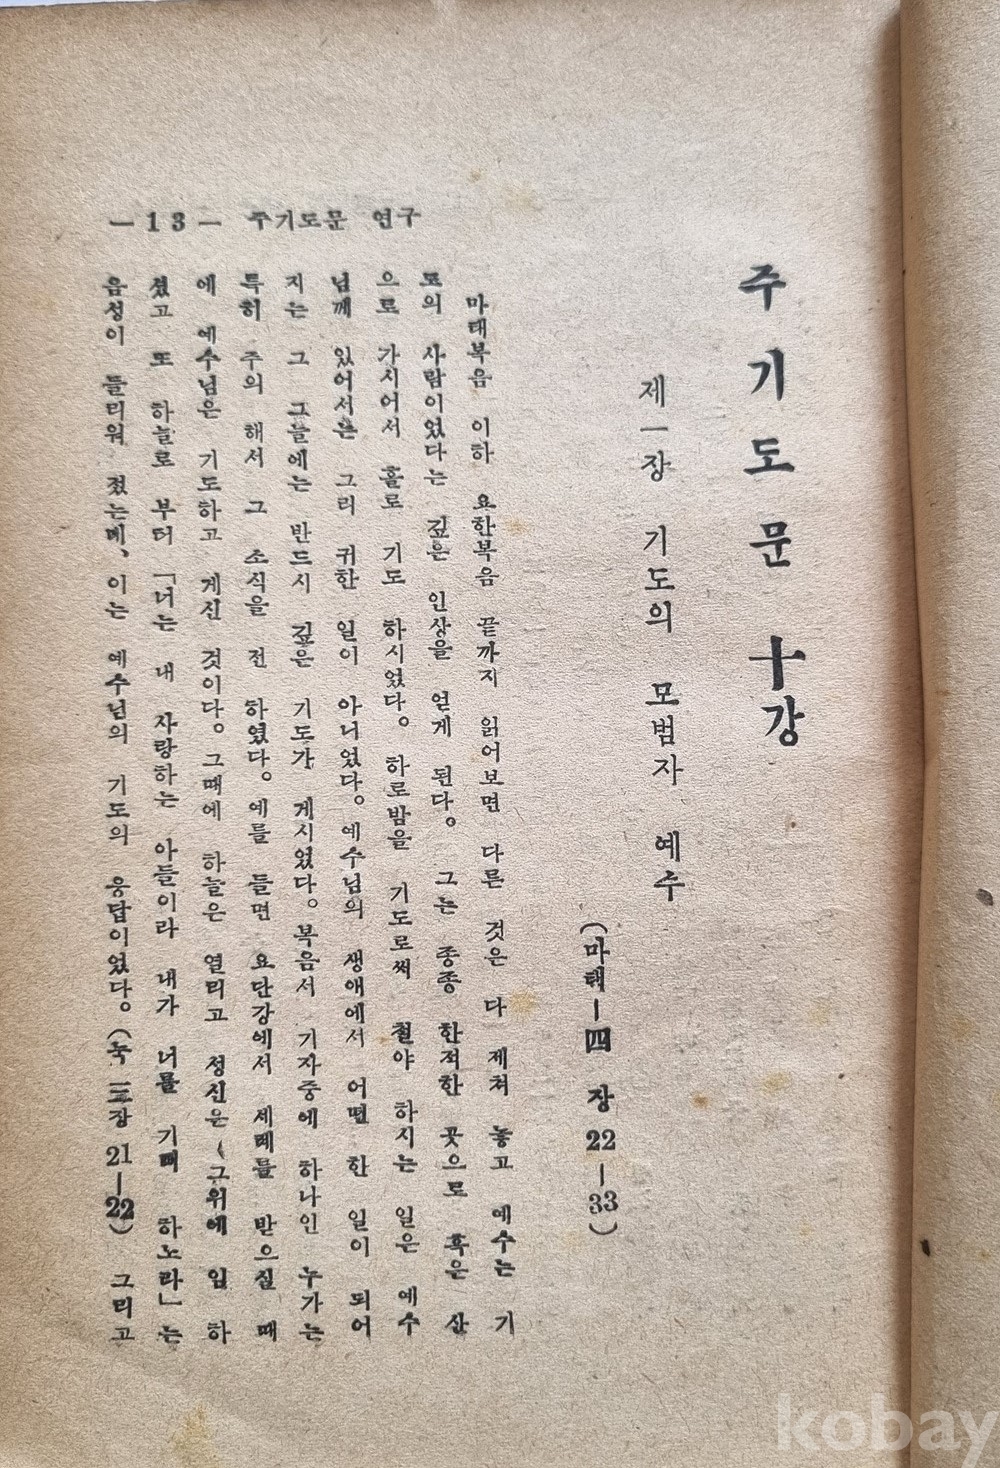 주기도문 十강
제一장 기도의 모범자 예수
(마태一四 장 22—33)
마태복음 이하 요한복음 끝까지 읽어보면 다른 것은 다 제쳐 놓고 예수는 기
도의 사람이었다는 깊은 인상을 얻게 된다。 그는 종종 한적한 곳으로 혹은 산
으로 가시어서 홀로 기도 하시었다。 하로밤을 기도로써 철야 하시는 일은 예수
님께 있어서는 그리 귀한 일이 아니었다。예수님의 생애에서 어떤 한 일이 되어
지는 그 그늘에는 반드시 깊은 기도가 게시었다。복음서 기자중에 하나인 누가는
특히 주의 해서 그 소식을 전 하였다。예를 들면 요단강에서 세례를 받으실 때
에 예수님은 기도하고 게신 것이다。그때에 하늘은 열리고 성신은 그위에 임 하
셨고 또 하늘로 부터 「너는 내 사랑하는 아들이라 내가 너를 기뻐 하노라」는
음성이 들리워 졌는데、이는 예수님의 기도의 응답이었다。(눅 三장 21—22) 그리고
—13— 주기도문 연구
kobay